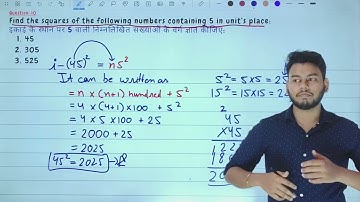 Question 10
Find the squares of the following numbers containing 5 in unit's place:
इकाई के स्थान पर 5 वाली निम्नलिखित संख्याओं के वर्ग ज्ञात कीजिए:
1. 45
2. 305
3. 525
i- (45)² = n5²
It can be written as
= n × (n+1) hundred + 5²
= 4 × (4+1) × 100 + 5²
= 4 × 5 × 100 + 25
= 2000 + 25
= 2025
45² = 2025
5² = 5×5 = 25
15² = 15×15 =
2
45
×45